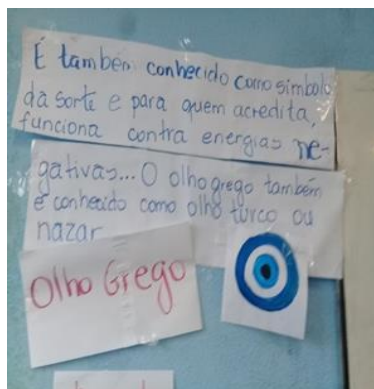 É também conhecido como símbolo
da sorte e para quem acredita,
funciona contra energias ne-
gativas... O olho grego também
é conhecido como olho turco ou
nazar
Olho Grego